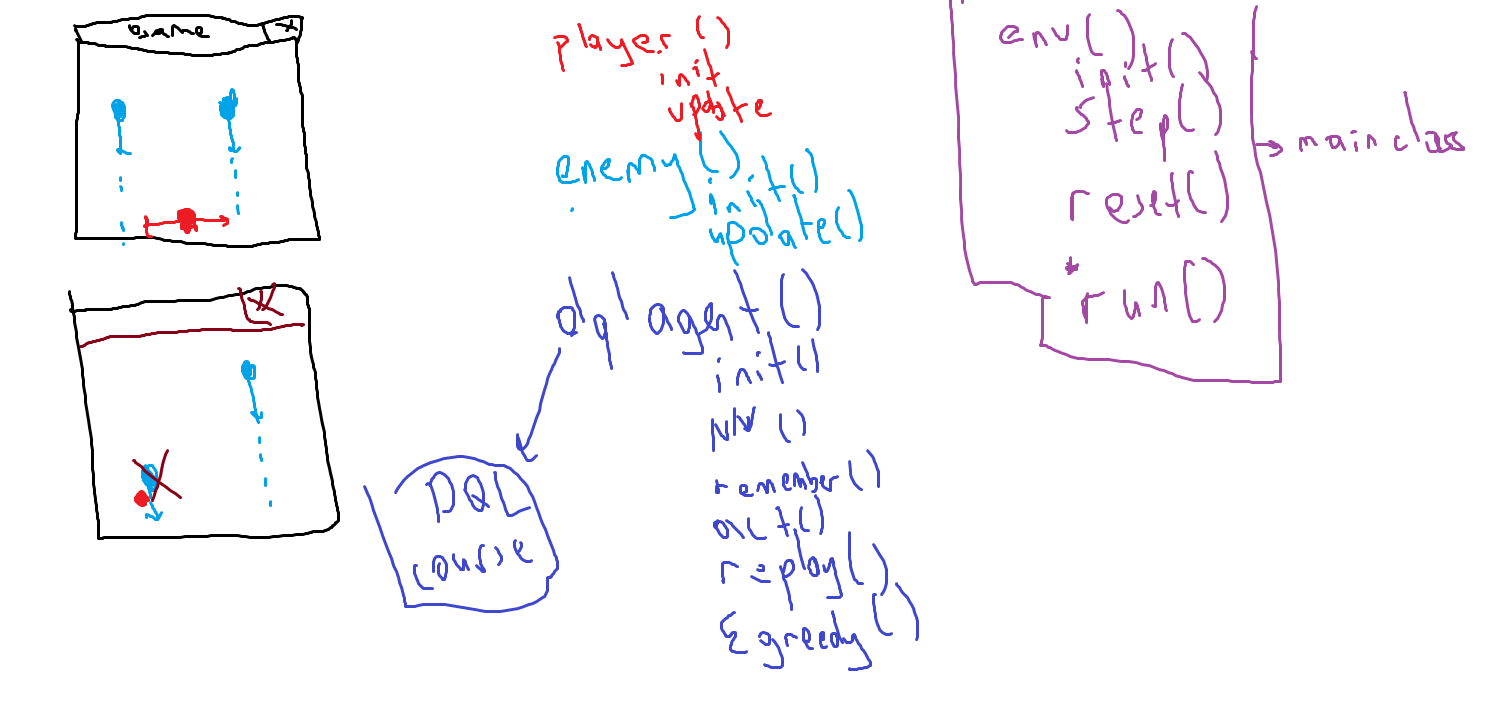 Game X
player ()
init
update
enemy()
init()
update()
dql agent ()
init()
NN ()
remember()
act()
replay()
Ɛ greedy()
DQL
course
env()
init()
step()
reset()
* run()
main class